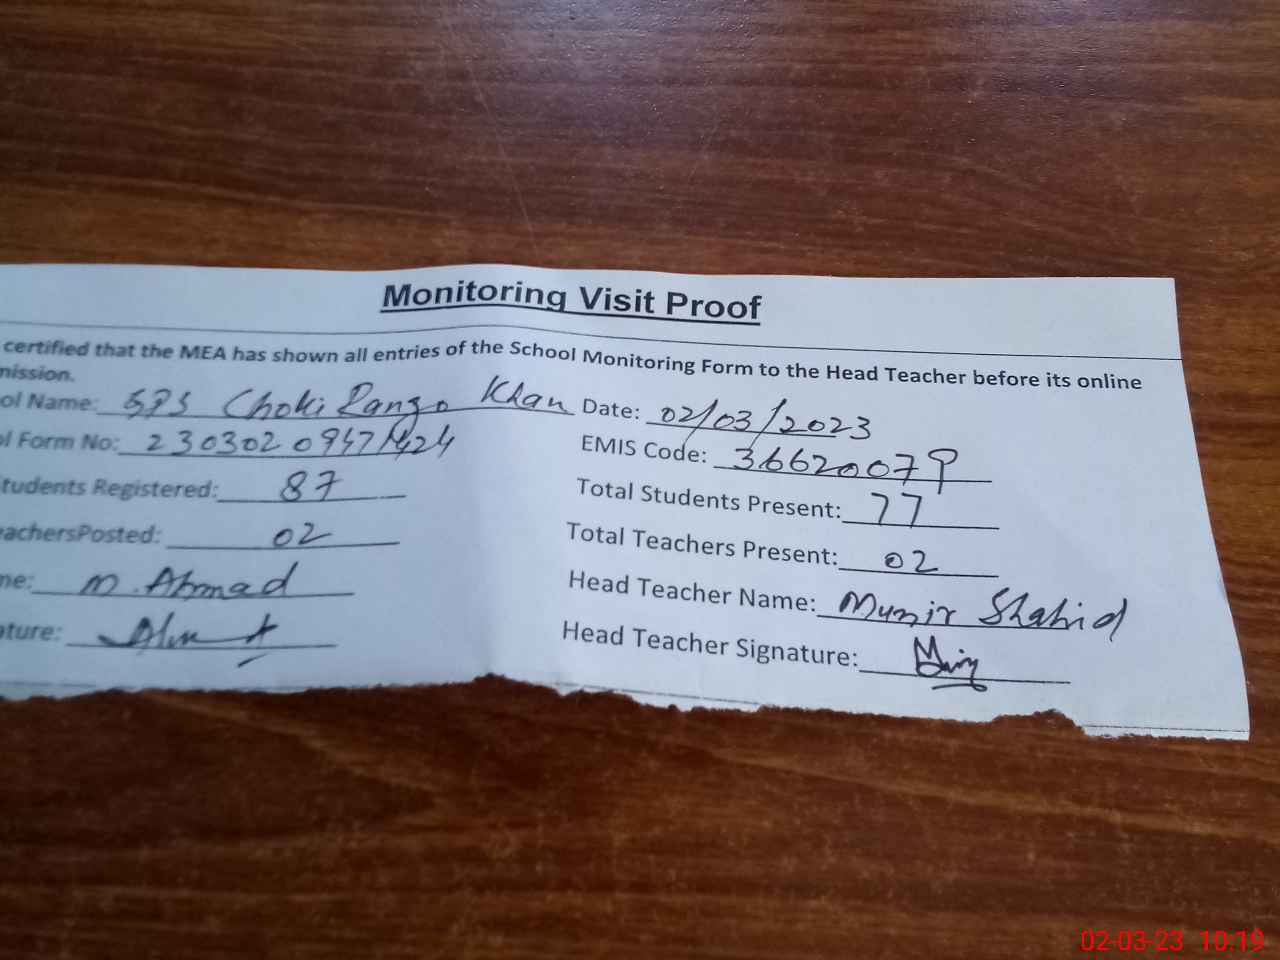 Monitoring Visit Proof
certified that the MEA has shown all entries of the School Monitoring Form to the Head Teacher before its online
mission.
ol Name: GPS Choki Rango Khan Date: 02/03/2023
ol Form No: EMIS Code: 36620079
tudents Registered: 87 Total Students Present: 77
eachersPosted: 02 Total Teachers Present: 02
me: M. Ahmad Head Teacher Name: Munir Shahid
ature: Head Teacher Signature:
02-03-23 10:19